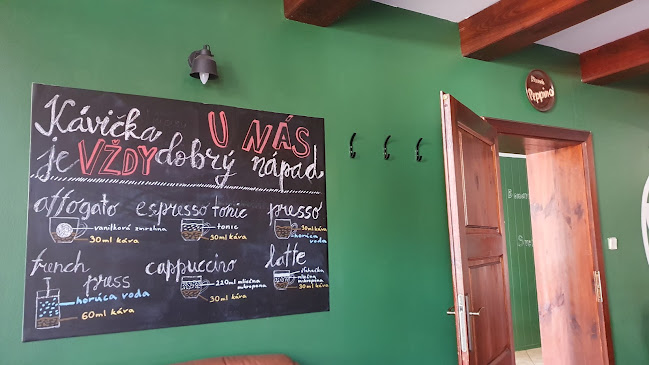 U NÁS
Kávička
je VŽDY dobrý nápad
affogato espresso tonic presso
vanilková zmrzlina
30ml káva
tonic
30ml káva
30ml káva
horúca
voda
french press cappuccino latte
horúca voda
60ml káva
120ml mliečna
mikropena
30ml káva
šľahačka
mliečna
mikropena
30ml káva
Peppino